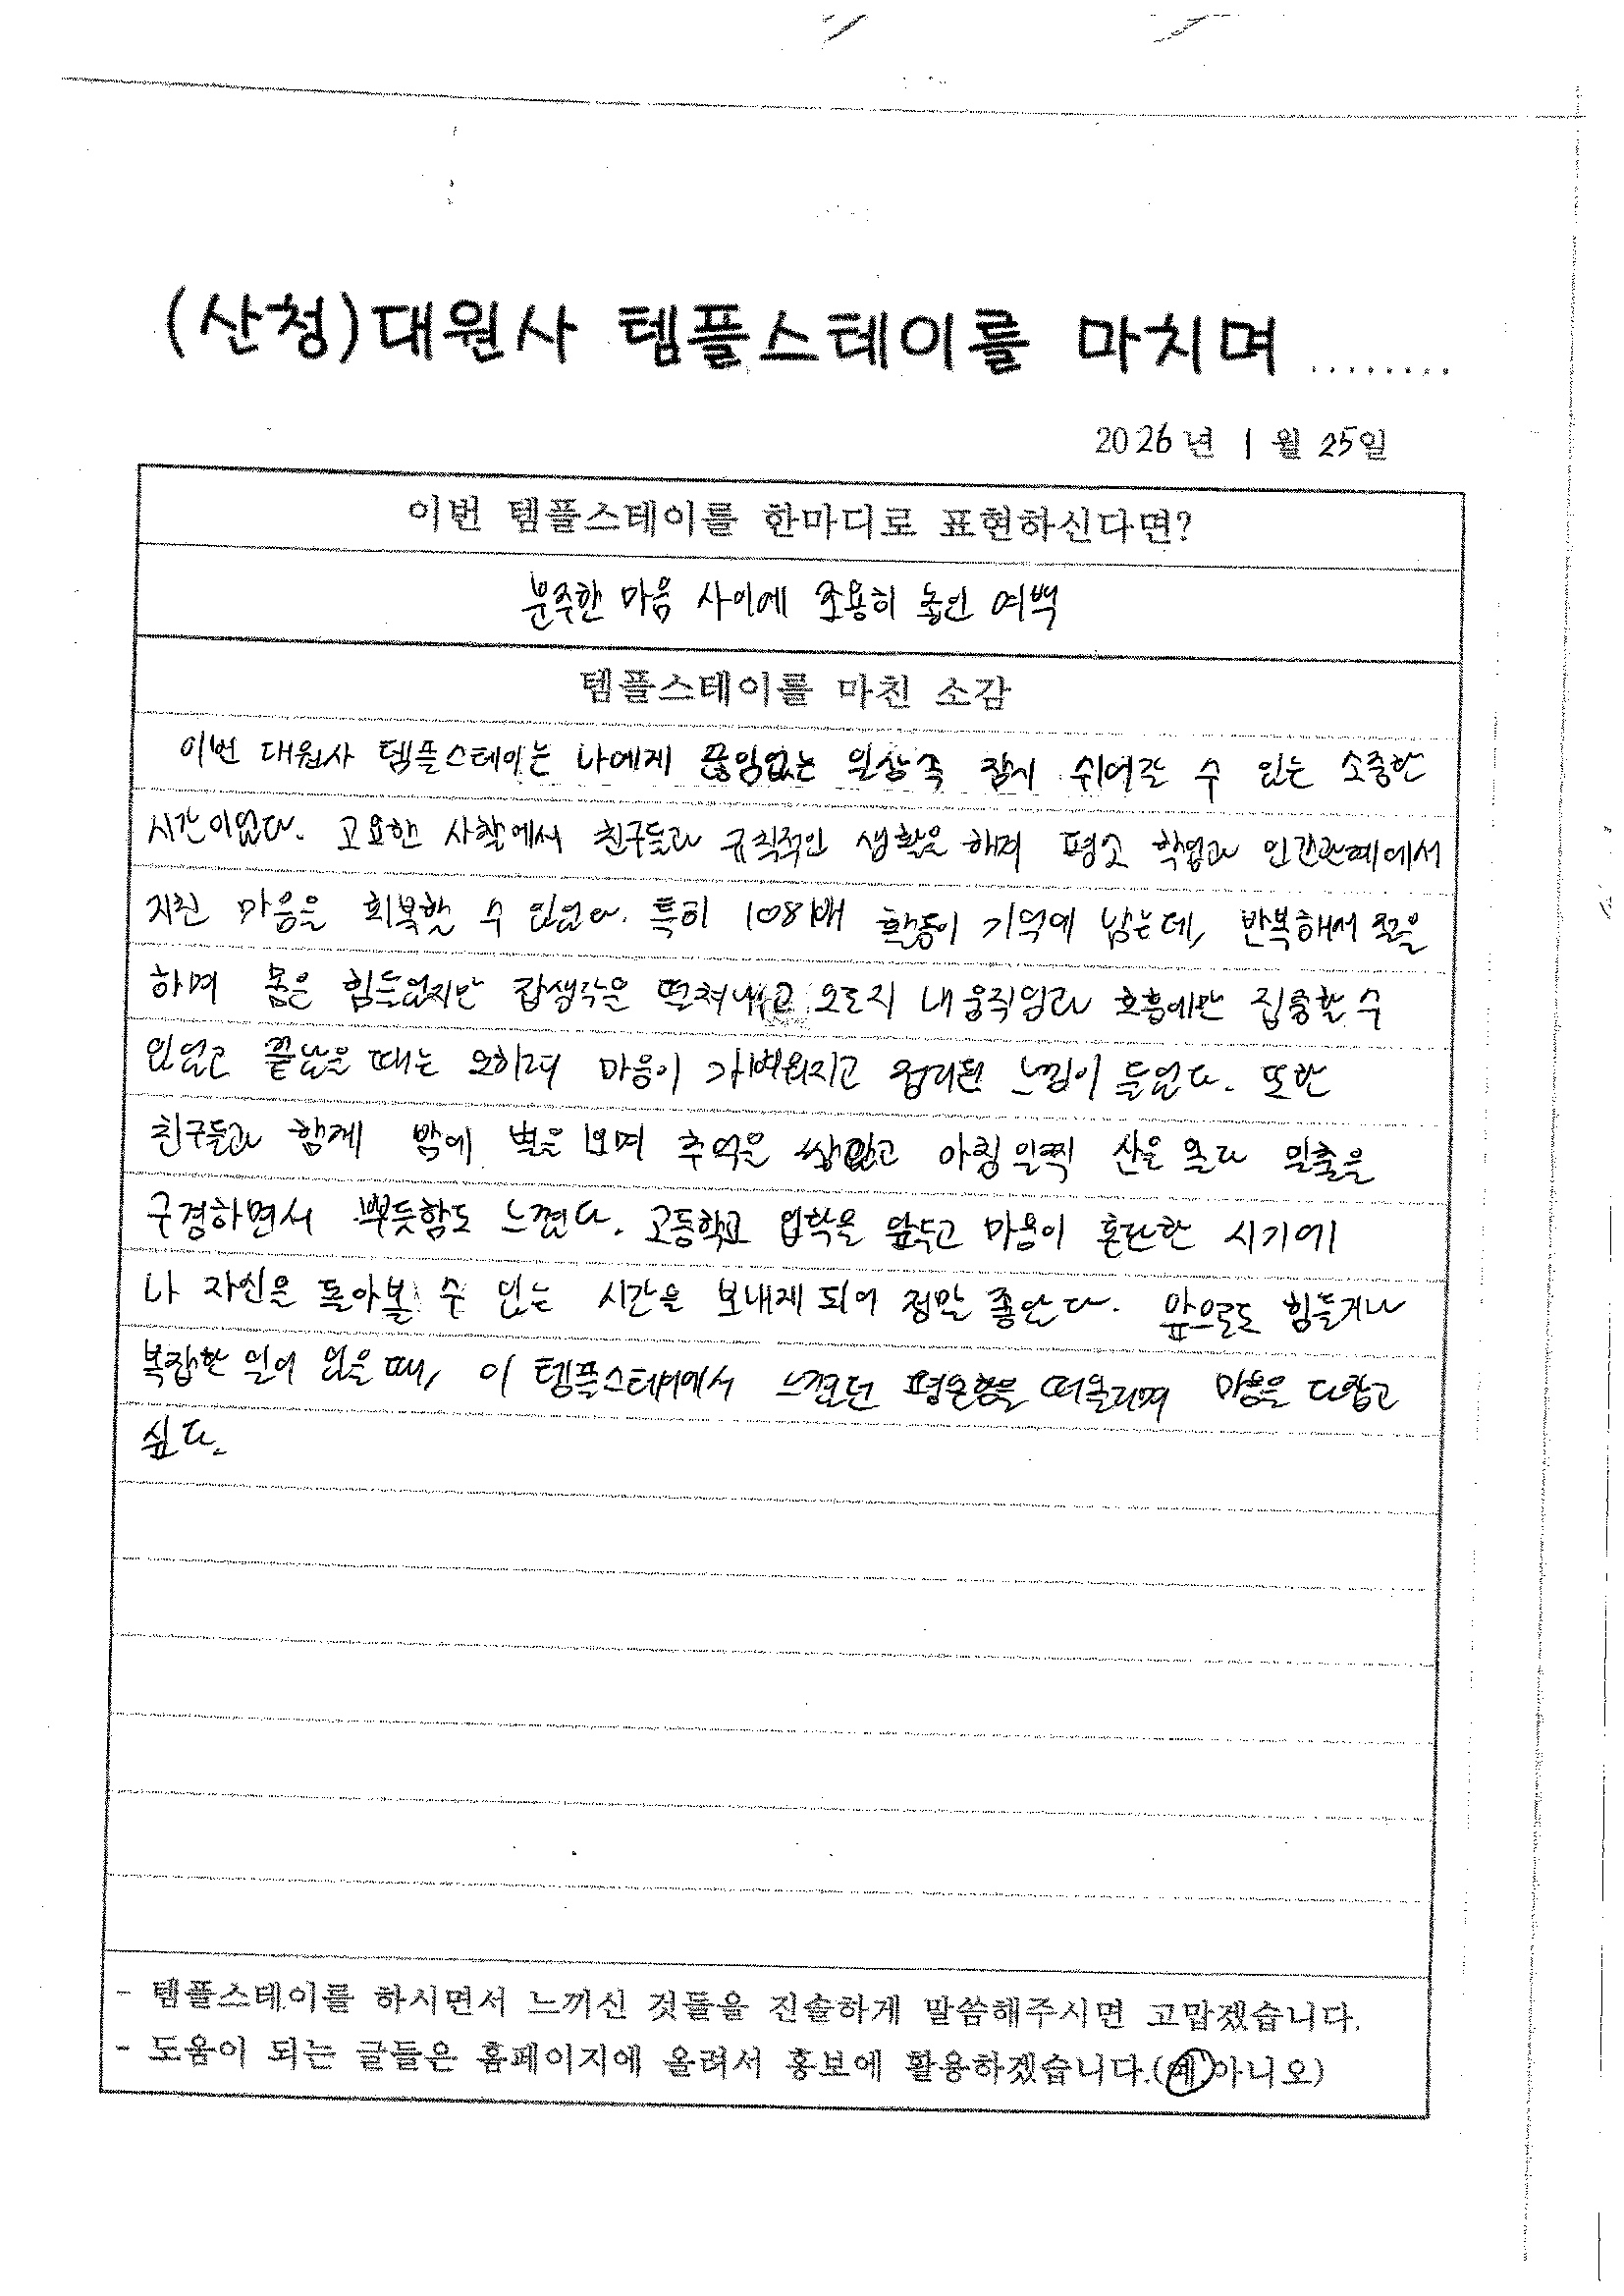 (산청)대원사 템플스테이를 마치며........
2026년 1월 25일
이번 템플스테이를 한마디로 표현하신다면?
분주한 마음 사이에 조용히 놓인 여백
템플스테이를 마친 소감
이번 대원사 템플스테이는 나에게 끊임없는 일상 속 잠시 쉬어갈 수 있는 소중한
시간이었다. 고요한 사찰에서 친구들과 규칙적인 생활을 하며 평소 학업과 인간관계에서
지친 마음을 회복할 수 있었다. 특히 108배 활동이 기억에 남는데, 반복해서 절을
하며 몸은 힘들었지만 잡생각은 떨쳐내고 오로지 내 움직임과 호흡에만 집중할 수
있었고 끝났을 때는 오히려 마음이 가벼워지고 정리된 느낌이 들었다. 또한
친구들과 함께 밤에 별을 보며 추억을 쌓았고 아침 일찍 산을 올라 일출을
구경하면서 뿌듯함도 느꼈다. 고등학교 입학을 앞두고 마음이 혼란한 시기에
나 자신을 돌아볼 수 있는 시간을 보내게 되어 정말 좋았다. 앞으로도 힘들거나
복잡한 일이 있을 때, 이 템플스테이에서 느꼈던 평온함을 떠올리며 마음을 다잡고
싶다.
- 템플스테이를 하시면서 느끼신 것들을 진솔하게 말씀해주시면 고맙겠습니다.
- 도움이 되는 글들은 홈페이지에 올려서 홍보에 활용하겠습니다.(예 아니오)